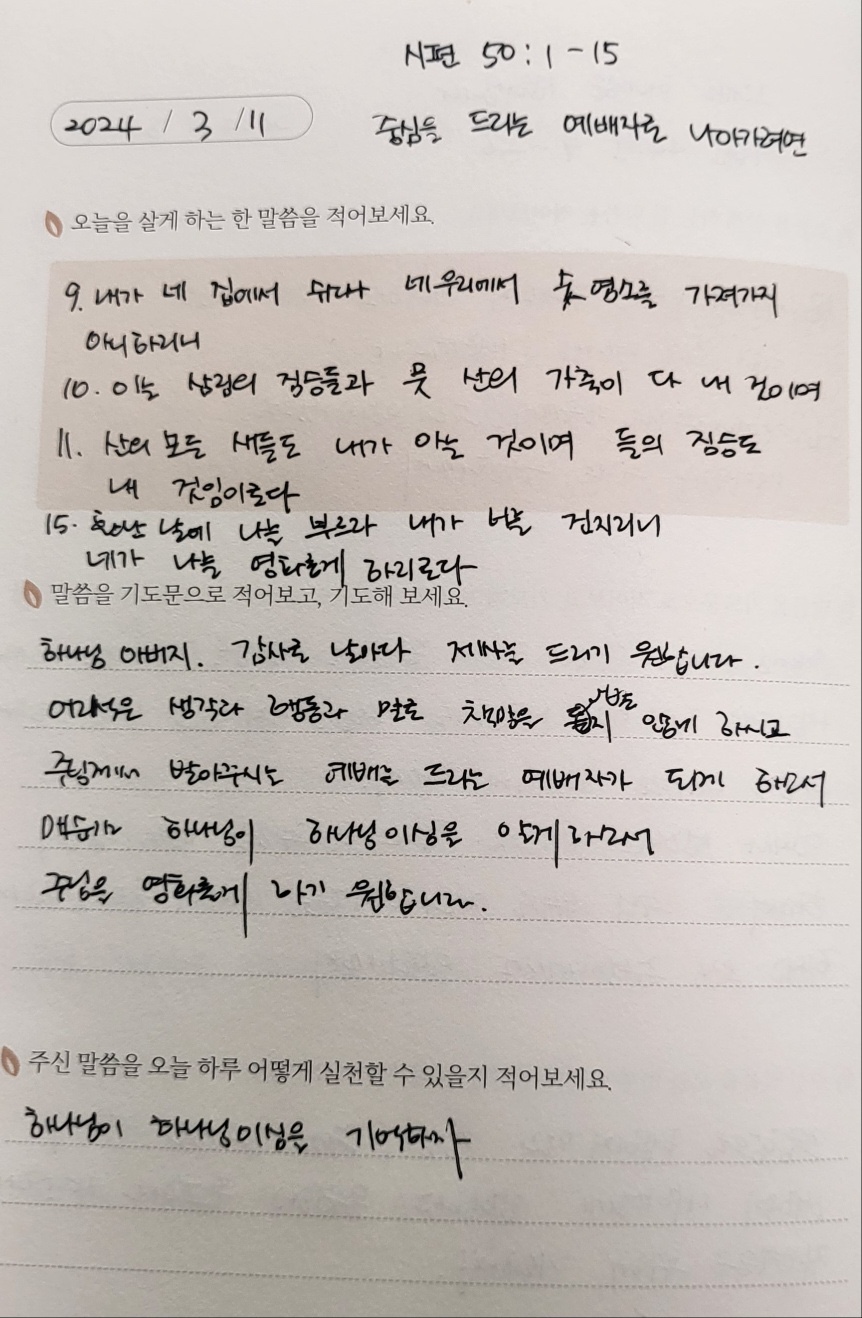 시편 50:1-15
2024 / 3 / 11
중심을 드리는 예배자로 나아가려면
오늘을 살게 하는 한 말씀을 적어보세요.
9. 내가 네 집에서 수소나 네 우리에서 숫 염소를 가져가지
아니하리니
10. 이는 삼림의 짐승들과 뭇 산의 가축이 다 내 것이며
11. 산의 모든 새들도 내가 아는 것이며 들의 짐승도
내 것임이로다
15. 환난 날에 나를 부르라 내가 너를 건지리니
네가 나를 영화롭게 하리로다
말씀을 기도문으로 적어보고, 기도해 보세요.
하나님 아버지. 감사로 날마다 제사를 드리기 원합니다.
어리석은 생각과 행동과 말로 책망을 받지 않게 하시고
주님께서 받아주시는 예배를 드리는 예배자가 되게 하소서
매순간 하나님이 하나님이심을 알게 하소서
주님을 영화롭게 하기 원합니다.
주신 말씀을 오늘 하루 어떻게 실천할 수 있을지 적어보세요.
하나님이 하나님이심을 기억하자